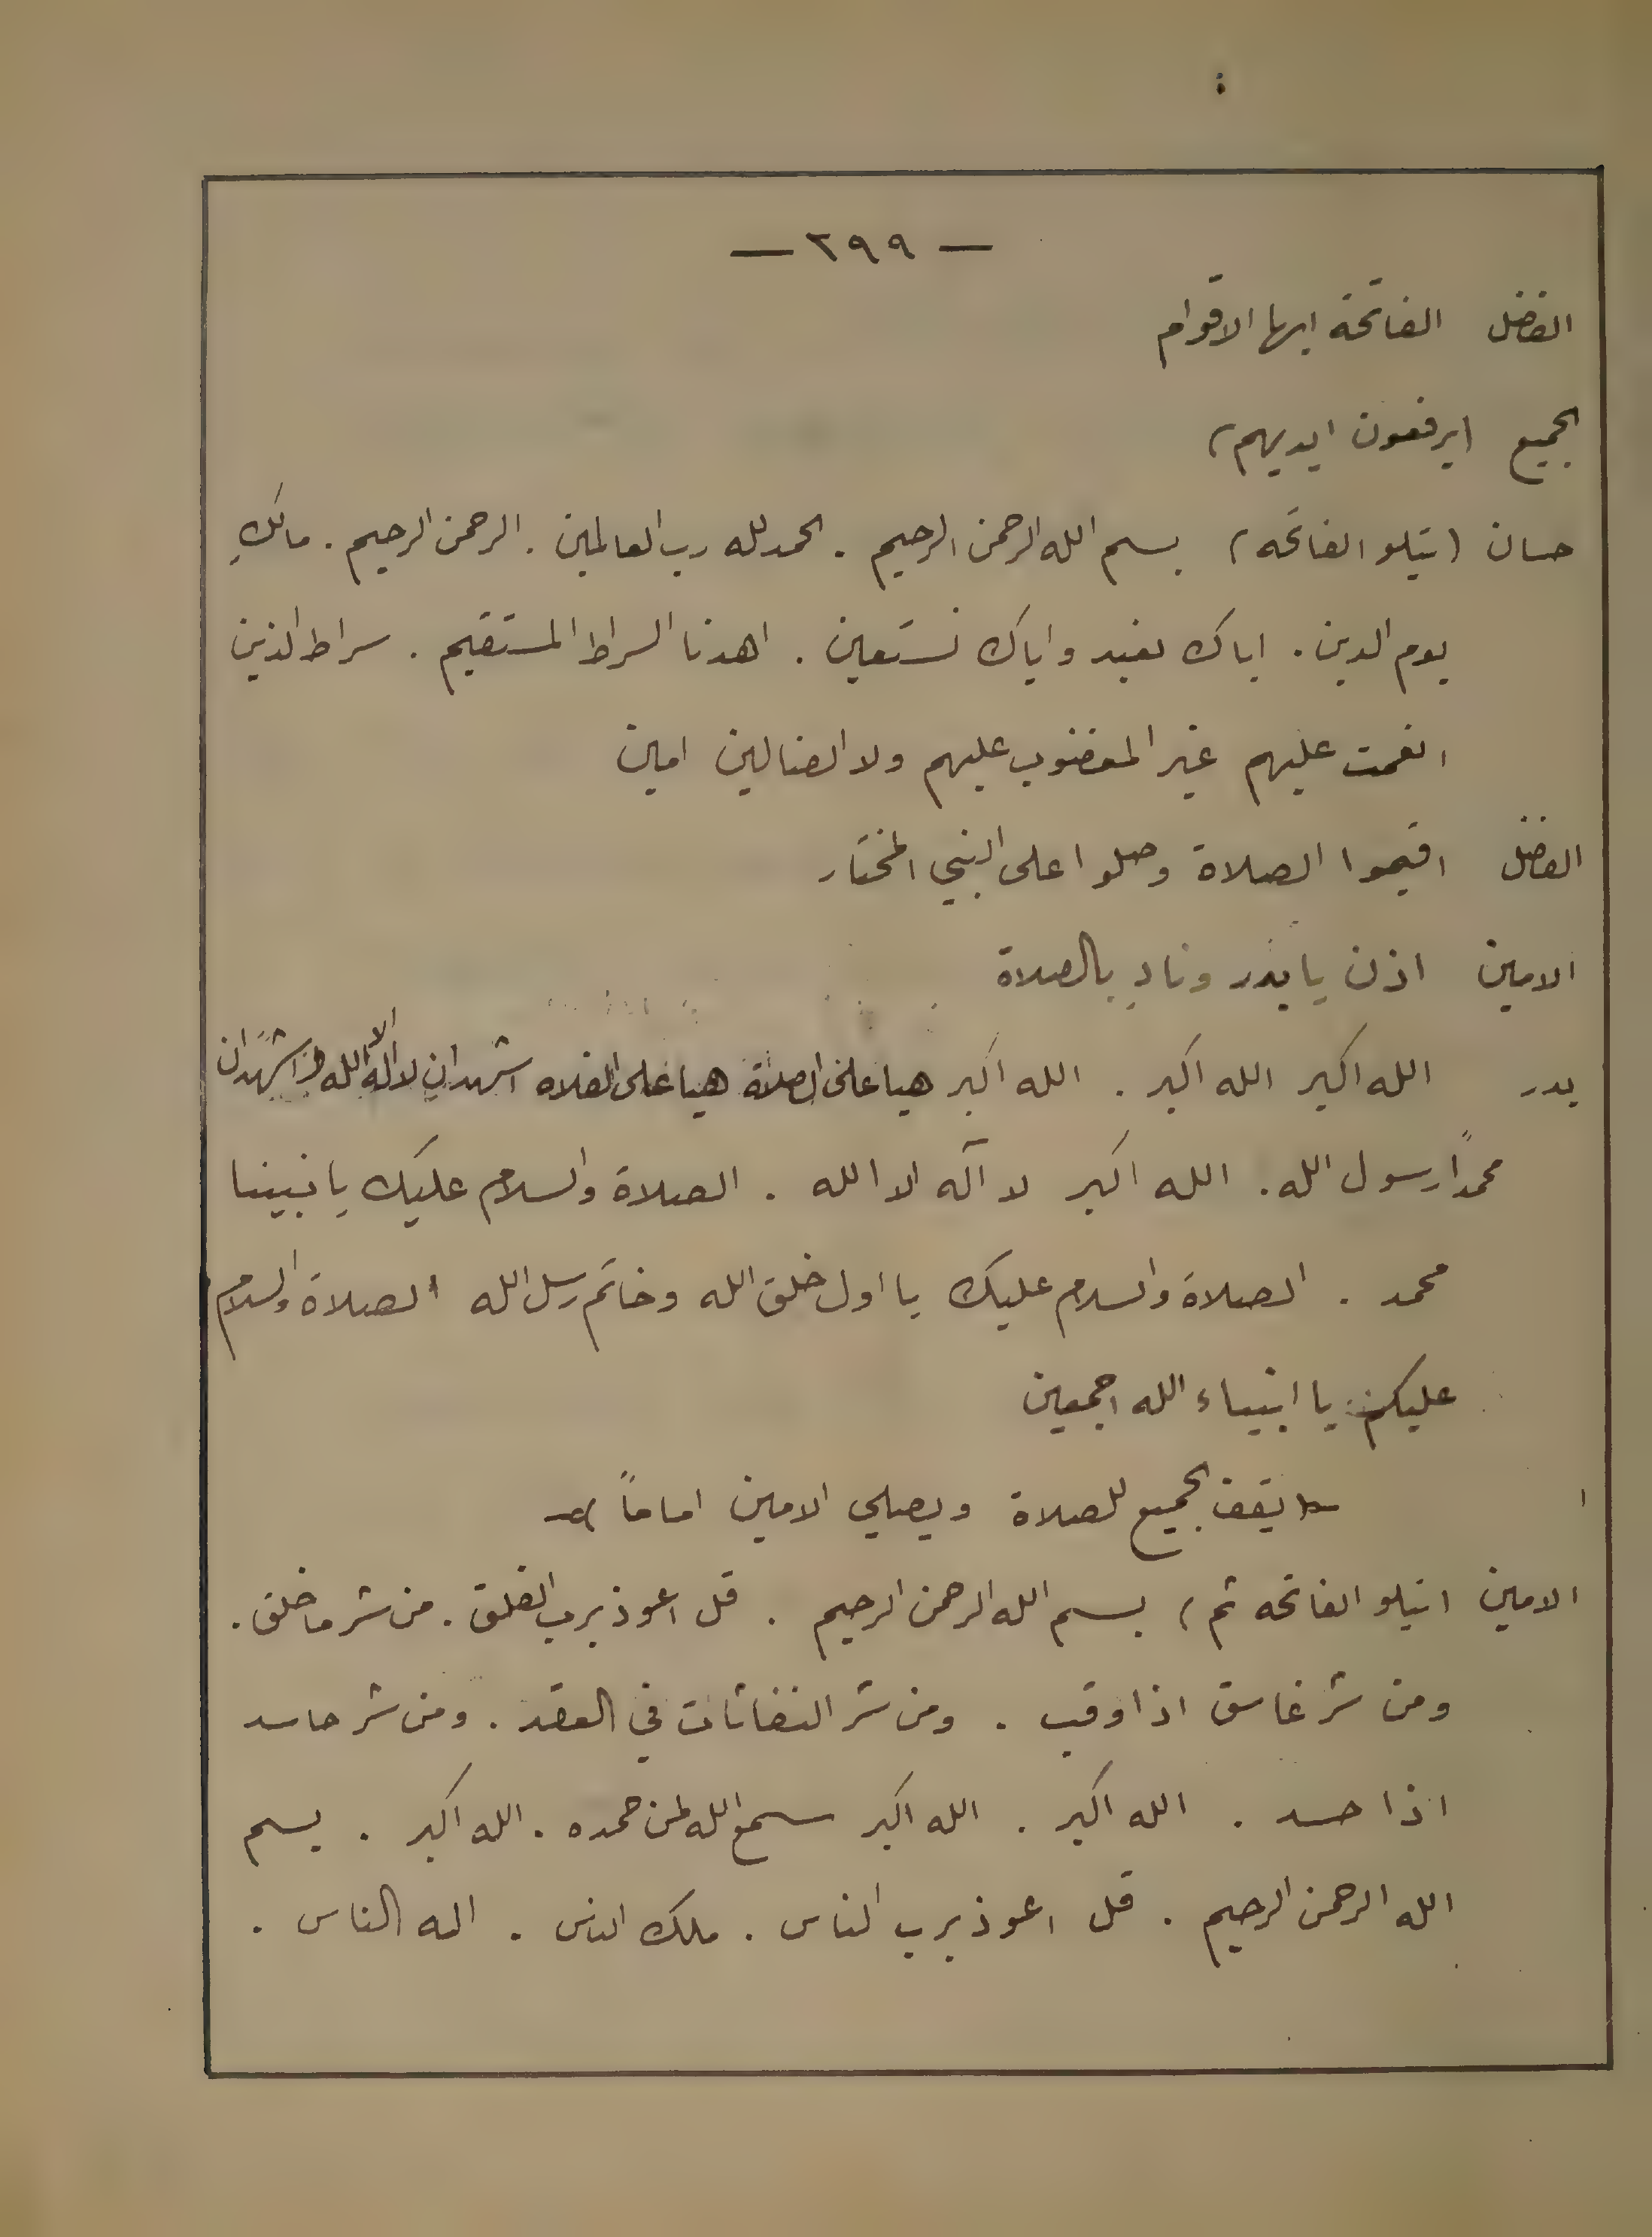 — ٢٩٩ —
الفضل الفاتحة ايها الاقوام
الجميع (يرفعون ايديهم)
حسان (يتلو الفاتحه) بسم الله الرحمن الرحيم . الحمد لله رب العالمين . الرحمن الرحيم . مالكِ
يوم الدين . اياك نعبد واياك نستعين . اهدنا السراط المستقيم . سراط الذين
انعمت عليهم غير المغضوب عليهم ولا الضالين امين
الفضل اقيموا الصلاة وصلوا على النبي المختار
الامين اذن يا بدر ونادِ بالصلاة
بدر الله اكبر الله اكبر . الله اكبر هيا على الصلاة هيا على الفلاه اشهد ان لا اله الا الله واشهد ان
محمداً رسول الله . الله اكبر لا آله الا الله . الصلاة والسلام عليك يا نبينا
محمد . الصلاة والسلام عليك يا اول خلق الله وخاتم رسل الله الصلاة والسلام
عليكم يا انبياء الله اجمعين
(يقف الجميع للصلاة ويصلي الامين اماماً)
الامين (يتلو الفاتحه ثم) بسم الله الرحمن الرحيم . قل اعوذ برب الفلق . من شر ما خلق .
ومن شر غاسق اذا وقب . ومن شر النفاثات في العقد . ومن شر حاسد
اذا حسد . الله اكبر . الله اكبر سمع الله لمن حمده . الله اكبر . بسم
الله الرحمن الرحيم . قل اعوذ برب الناس . ملك الناس . اله الناس .